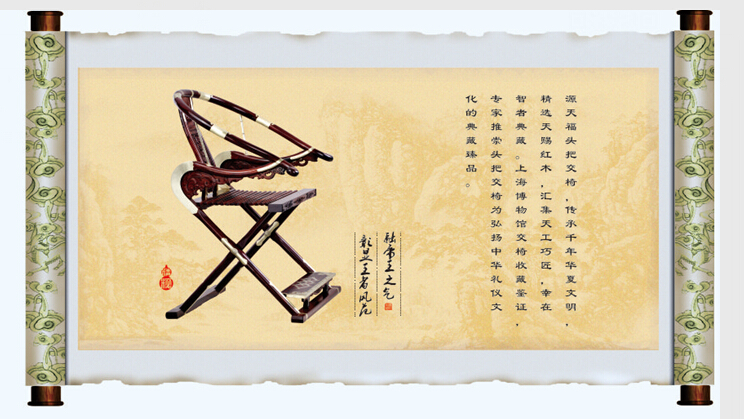 源天福头把交椅，传承千年华夏文明，
精选天赐红木，汇集天工巧匠，幸在
智者典藏。上海博物馆交椅收藏鉴证，
专家推崇头把交椅为弘扬中华礼仪文
化的典藏臻品。
帝王之气
彰显王者风范